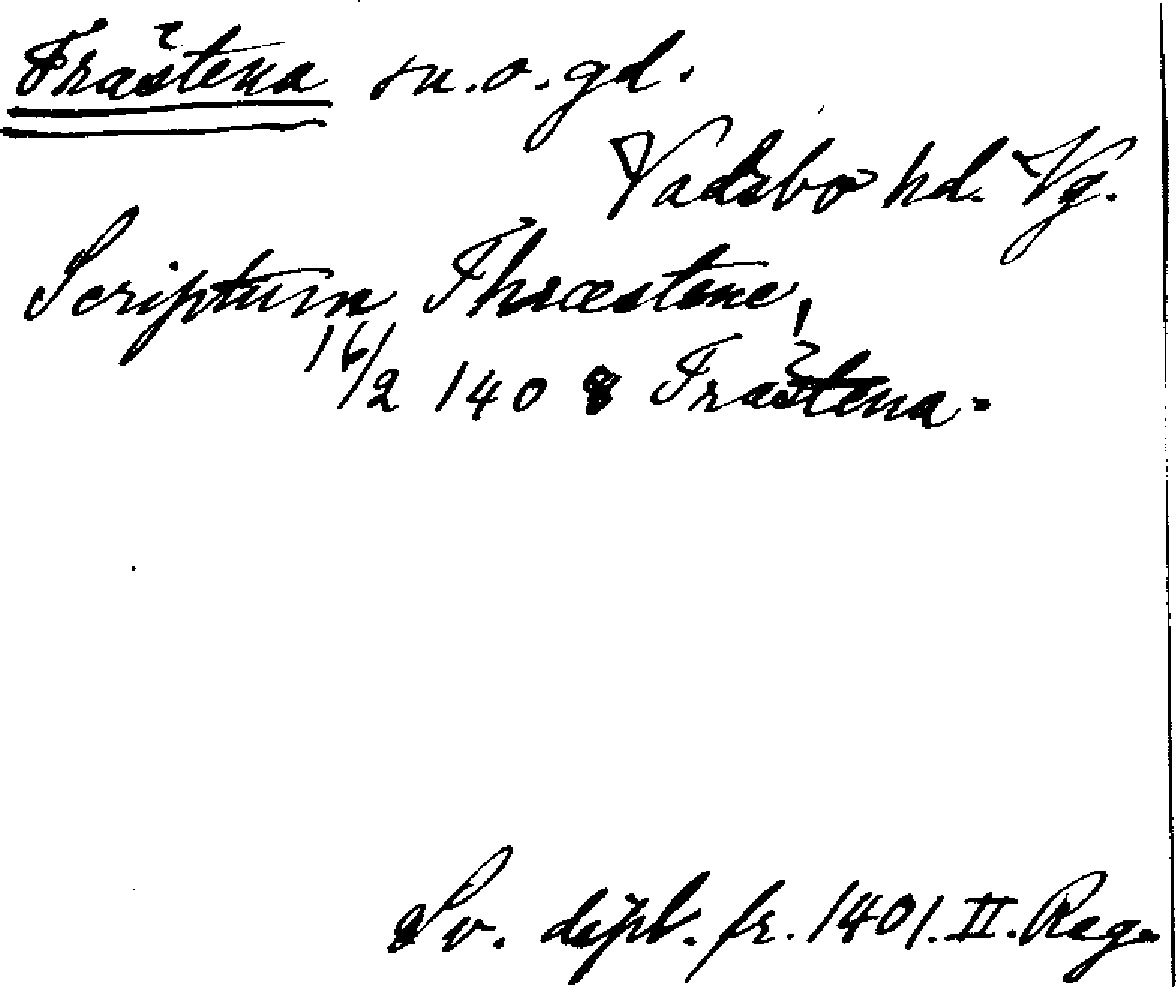 Trästena sn. o. gd.
Vadsbo hd. Vg.
Scriptum Thræstene,
16/2 1408 Trästena.
Sv. dipl. fr. 1401. II. Reg.